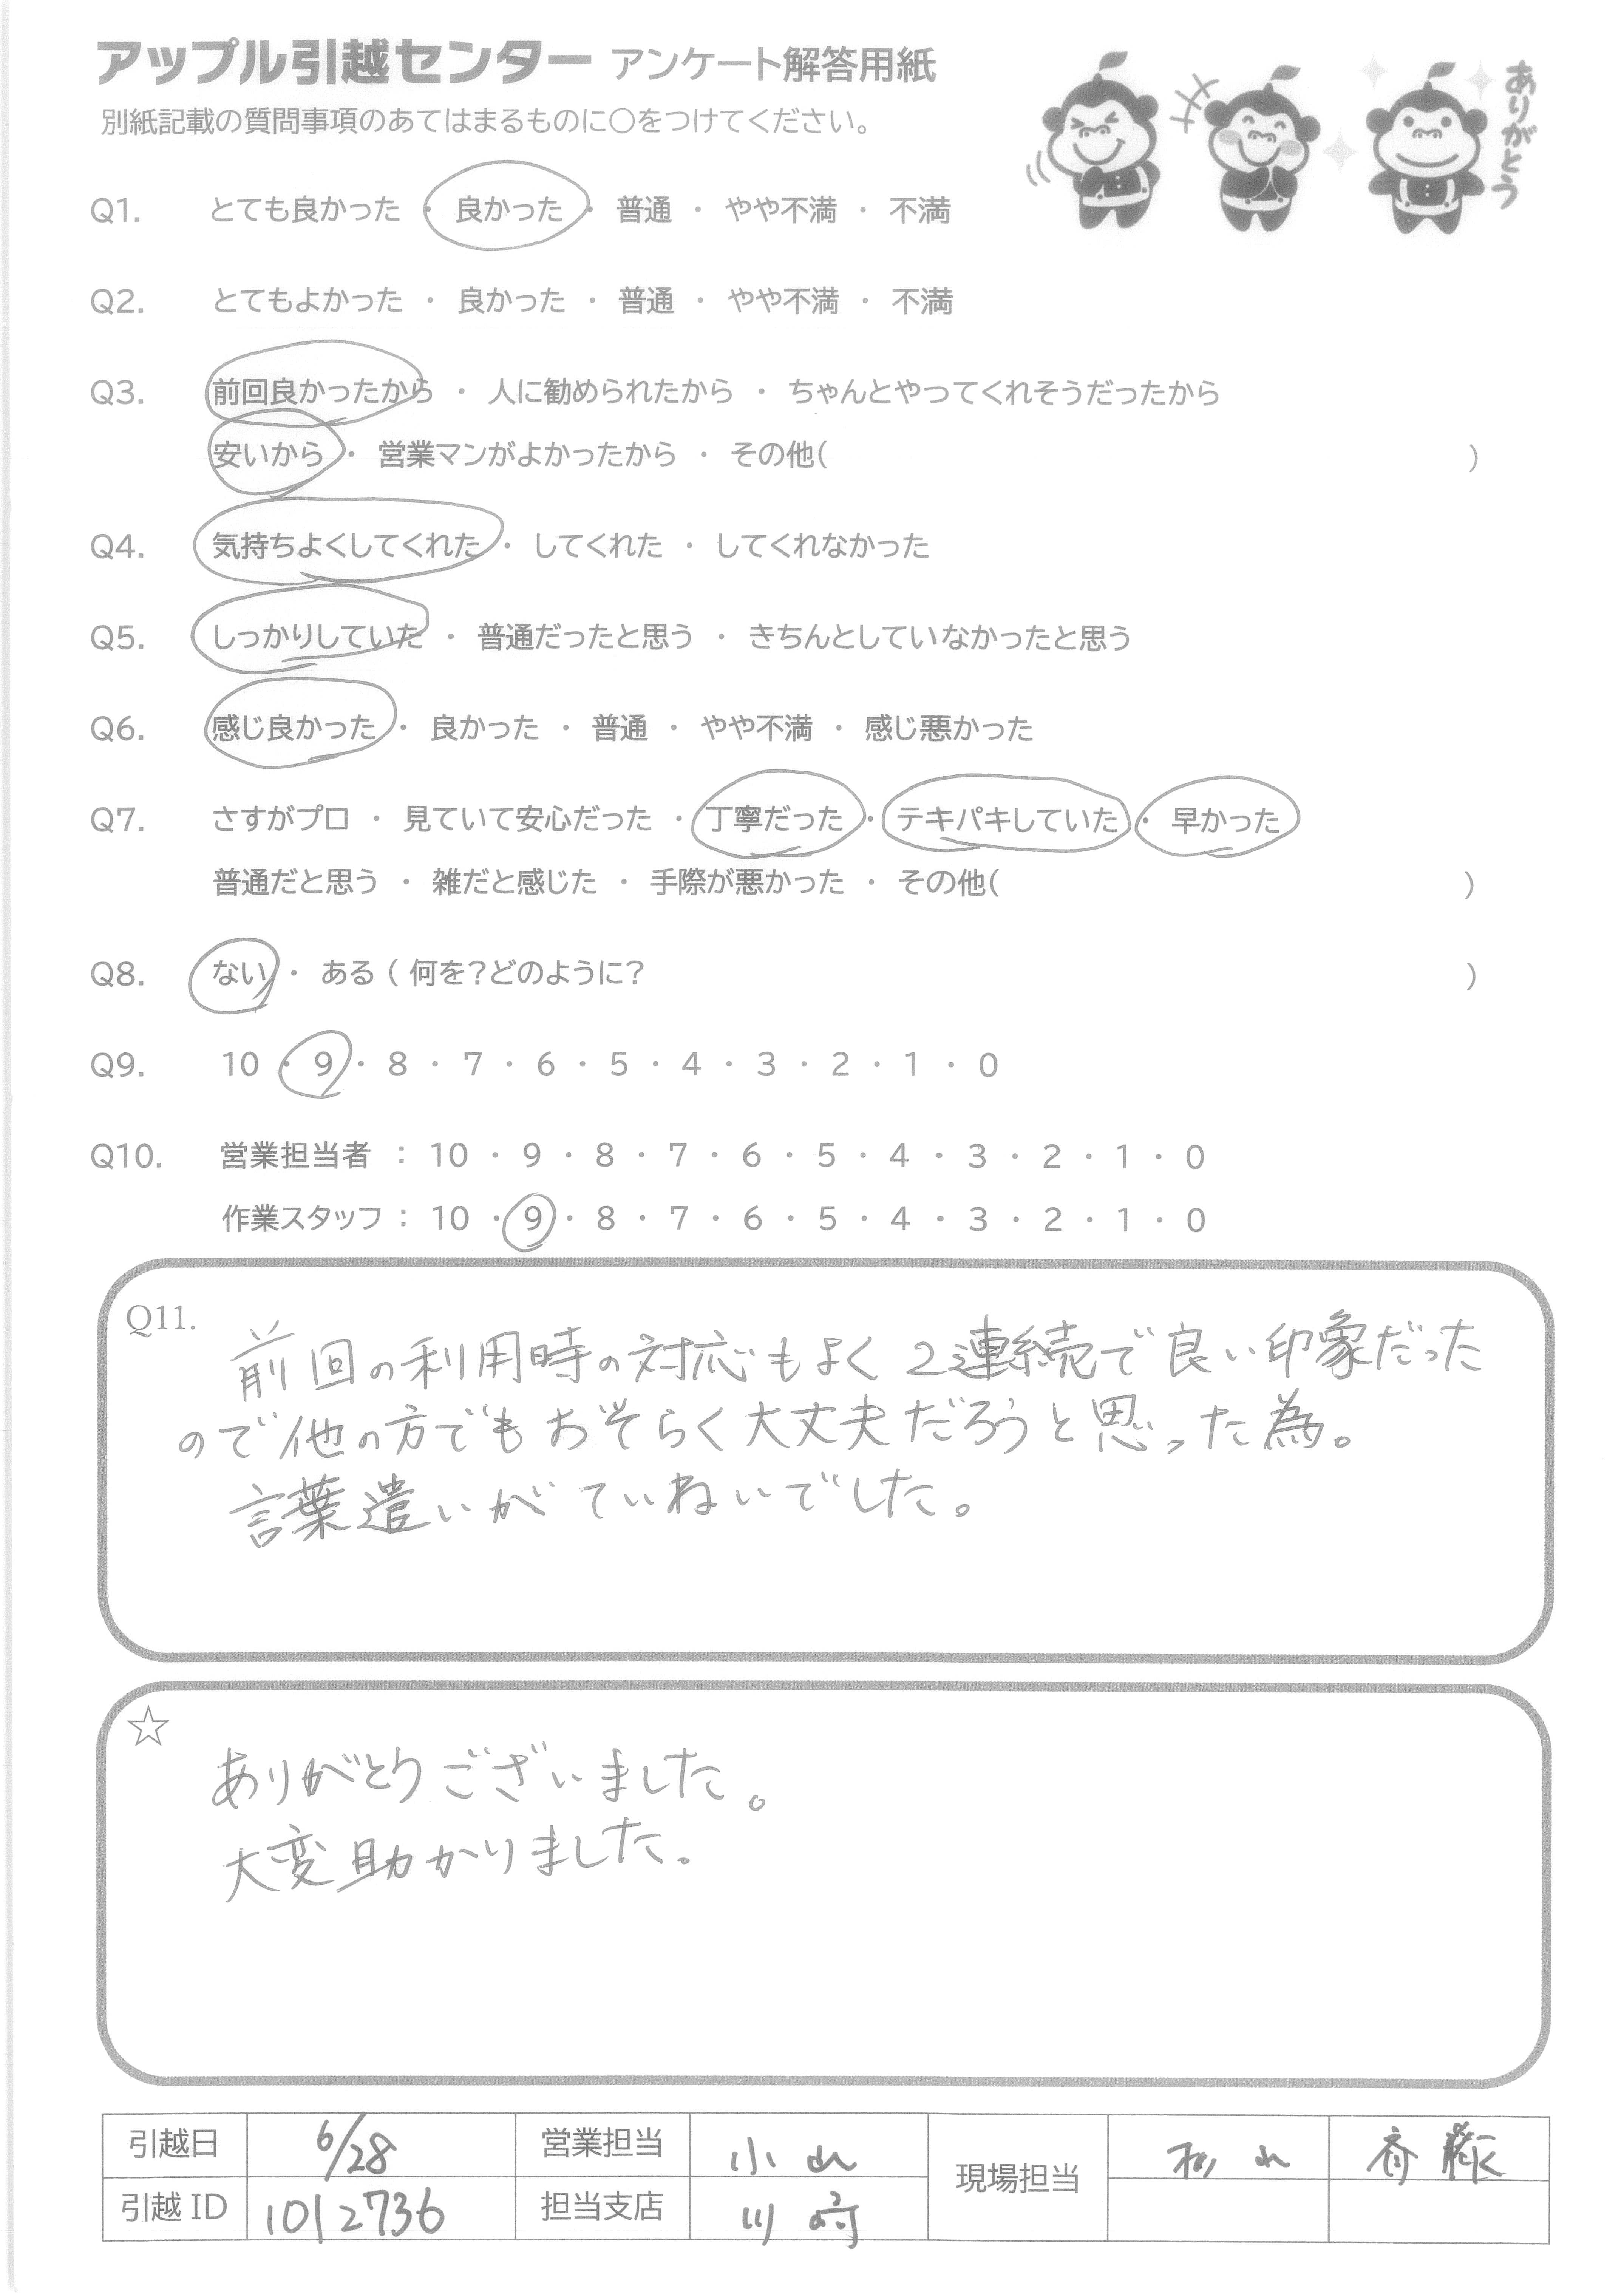 アップル引越センター アンケート解答用紙
別紙記載の質問事項のあてはまるものに○をつけてください。
ありがとう
Q1. とても良かった ・ 良かった ・ 普通 ・ やや不満 ・ 不満
Q2. とてもよかった ・ 良かった ・ 普通 ・ やや不満 ・ 不満
Q3. 前回良かったから ・ 人に勧められたから ・ ちゃんとやってくれそうだったから
安いから ・ 営業マンがよかったから ・ その他( )
Q4. 気持ちよくしてくれた ・ してくれた ・ してくれなかった
Q5. しっかりしていた ・ 普通だったと思う ・ きちんとしていなかったと思う
Q6. 感じ良かった ・ 良かった ・ 普通 ・ やや不満 ・ 感じ悪かった
Q7. さすがプロ ・ 見ていて安心だった ・ 丁寧だった ・ テキパキしていた ・ 早かった
普通だと思う ・ 雑だと感じた ・ 手際が悪かった ・ その他( )
Q8. ない ・ ある ( 何を?どのように? )
Q9. 10 ・ 9 ・ 8 ・ 7 ・ 6 ・ 5 ・ 4 ・ 3 ・ 2 ・ 1 ・ 0
Q10. 営業担当者 : 10 ・ 9 ・ 8 ・ 7 ・ 6 ・ 5 ・ 4 ・ 3 ・ 2 ・ 1 ・ 0
作業スタッフ : 10 ・ 9 ・ 8 ・ 7 ・ 6 ・ 5 ・ 4 ・ 3 ・ 2 ・ 1 ・ 0
Q11. 前回の利用時の対応もよく2連続で良い印象だった
ので他の方でもおそらく大丈夫だろうと思った為。
言葉遣いがていねいでした。
☆
ありがとうございました。
大変助かりました。
引越日 6/28 営業担当 小山 現場担当 斉藤
引越 ID 1012736 担当支店 川崎